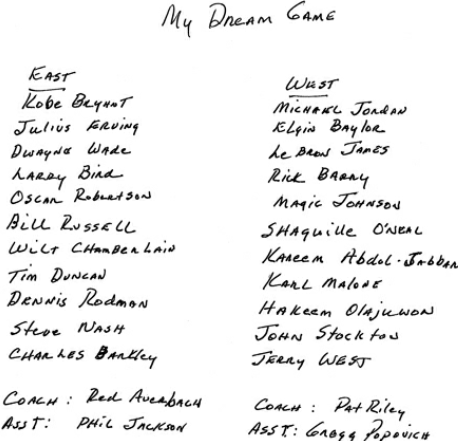 My Dream Game
East
Kobe Bryant
Julius Erving
Dwayne Wade
Larry Bird
Oscar Robertson
Bill Russell
Wilt Chamberlain
Tim Duncan
Dennis Rodman
Steve Nash
Charles Barkley
Coach: Red Auerbach
Ass't: Phil Jackson
West
Michael Jordan
Elgin Baylor
LeBron James
Rick Barry
Magic Johnson
Shaquille O'Neal
Kareem Abdul-Jabbar
Karl Malone
Hakeem Olajuwon
John Stockton
Jerry West
Coach: Pat Riley
Ass't: Gregg Popovich